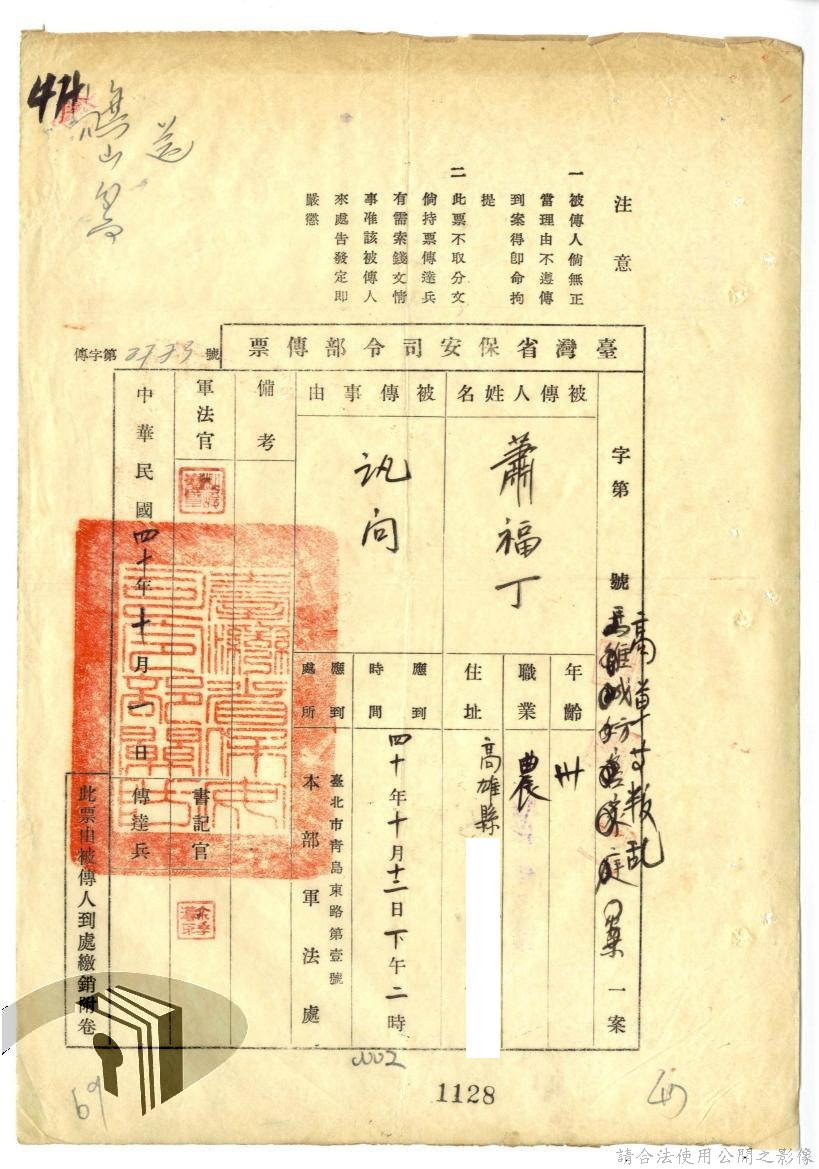 注意
一 被傳人倘無正
當理由不遵傳
到案得卽命拘
提
二 此票不取分文
倘持票傳達兵
有需索錢文情
事准該被傳人
來處告發定卽
嚴懲
送
旗山
臺灣省保安司令部傳票
傳字第 號
字第 號
叛乱
一案
被傳人姓名
蕭福丁
年齡
卅
職業
農
住址
高雄縣
被傳事由
訊问
應到時間
四十年十月十二日下午二時
應到處所
臺北市青島東路第壹號
本部軍法處
備考
軍法官
書記官
臺灣省保安司令部關防
中華民國四十年十月一日
傳達兵
此票由被傳人到處繳銷附卷
1128
69
請合法使用公開之影像